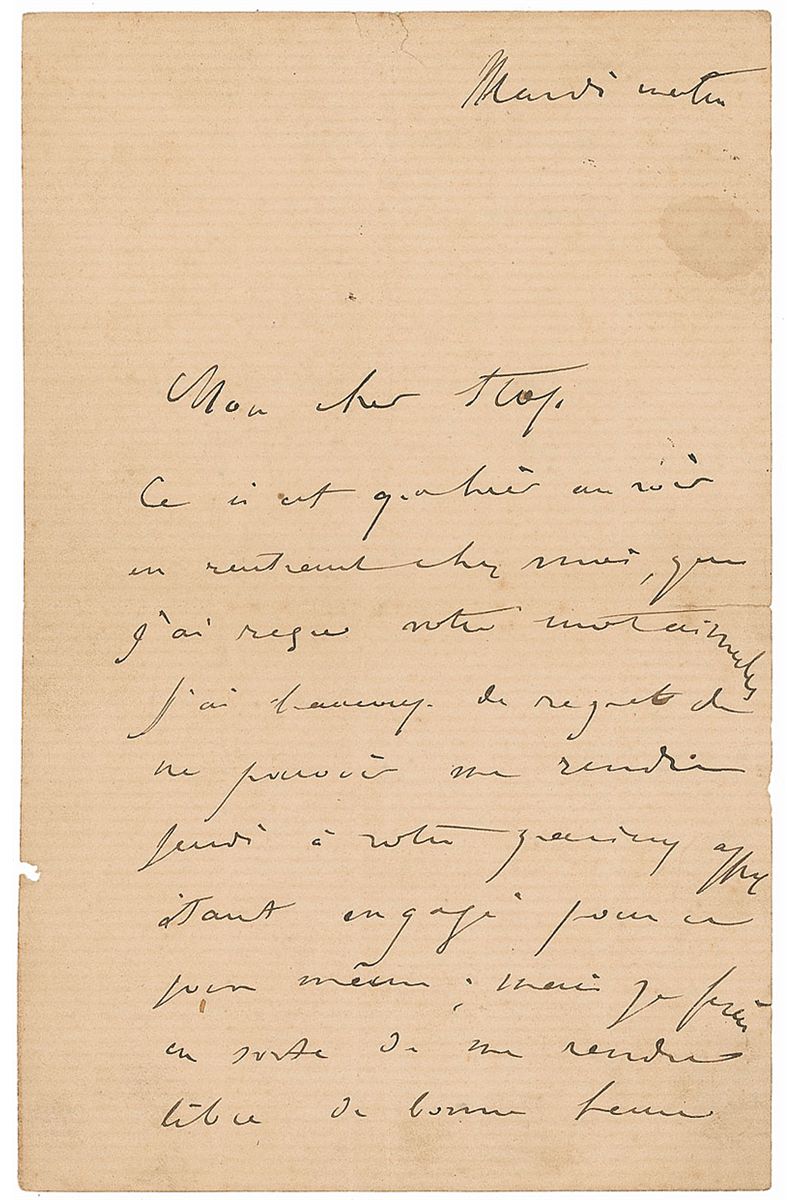 Mardi matin
Mon cher Stop.
Ce n'est qu'hier au soir
en rentrant chez moi, que
j'ai reçu votre mot aimable
j'ai beaucoup de regret de
ne pouvoir me rendre
jeudi à votre gracieux appel
étant engagé pour ce
jour même ; mais je ferai
en sorte de me rendre
libre de bonne heure